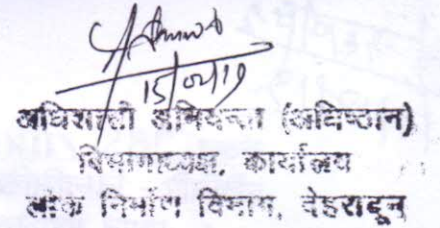 15/02/19
अधिशासी अभियन्ता (अधिष्ठान)
विभागाध्यक्ष, कार्यालय
लोक निर्माण विभाग, देहरादून